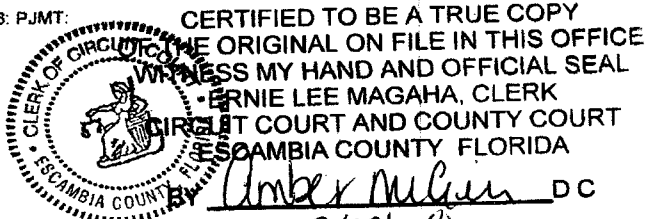 3: PJMT:
CERTIFIED TO BE A TRUE COPY
OF THE ORIGINAL ON FILE IN THIS OFFICE
WITNESS MY HAND AND OFFICIAL SEAL
ERNIE LEE MAGAHA, CLERK
CIRCUIT COURT AND COUNTY COURT
ESCAMBIA COUNTY FLORIDA
BY Amber D C
CLERK OF CIRCUIT COURT
ESCAMBIA COUNTY FLORIDA